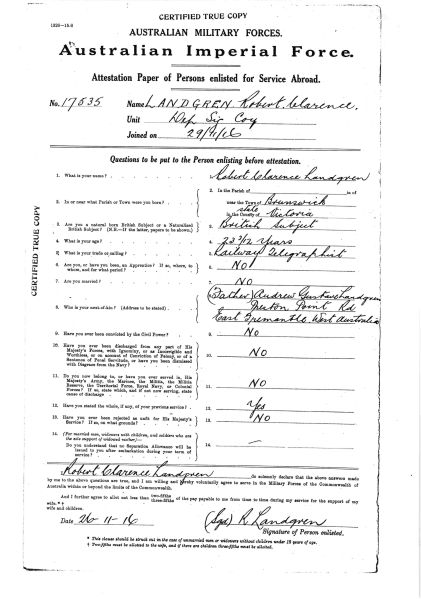 CERTIFIED TRUE COPY
1926—10.6
AUSTRALIAN MILITARY FORCES.
Australian Imperial Force.
Attestation Paper of Persons enlisted for Service Abroad.
No. 17535 Name LANDGREN Robert Clarence.
Unit Dep Sig Coy
Joined on 29/4/16
Questions to be put to the Person enlisting before attestation.
1. What is your name? 1. Robert Clarence Landgren
2. In or near what Parish or Town were you born? 2. In the Parish of in or
near the Town of Brunswick
in the County of state Victoria
3. Are you a natural born British Subject or a Naturalized
British Subject? (N.B.—If the latter, papers to be shown.) 3. British Subject
4. What is your age? 4. 23 Years
5. What is your trade or calling? 5. Railway Telegraphist
6. Are you, or have you been, an Apprentice? If so, where, to
whom, and for what period? 6. NO
7. Are you married? 7. NO
8. Who is your next-of-kin? (Address to be stated) 8. (Father) Andrew Gustave Landgren
Preston Point Rd
East Fremantle West Australia
9. Have you ever been convicted by the Civil Power? 9. NO
10. Have you ever been discharged from any part of His
Majesty's Forces, with Ignominy, or as Incorrigible and
Worthless, or on account of Conviction of Felony, or of a
Sentence of Penal Servitude, or have you been dismissed
with Disgrace from the Navy? 10. NO
11. Do you now belong to, or have you ever served in, His
Majesty's Army, the Marines, the Militia, the Militia
Reserve, the Territorial Force, Royal Navy, or Colonial
Forces? If so, state which, and if not now serving, state
cause of discharge 11. NO
12. Have you stated the whole, if any, of your previous service? 12. Yes
13. Have you ever been rejected as unfit for His Majesty's
Service? If so, on what grounds? 13. NO
14. (For married men, widowers with children, and soldiers who are
the sole support of widowed mother)—
Do you understand that no Separation Allowance will be
issued to you after embarkation during your term of
service? 14. —
I, Robert Clarence Landgren do solemnly declare that the above answers made
by me to the above questions are true, and I am willing and hereby voluntarily agree to serve in the Military Forces of the Commonwealth of
Australia within or beyond the limits of the Commonwealth.
* And I further agree to allot not less than two-fifths three-fifths of the pay payable to me from time to time during my service for the support of my
wife. * †
wife and children.
Date 26-11-16 (Sgd) R Landgren
Signature of Person enlisted.
* This clause should be struck out in the case of unmarried men or widowers without children under 18 years of age.
† Two-fifths must be allotted to the wife, and if there are children three-fifths must be allotted.
CERTIFIED TRUE COPY